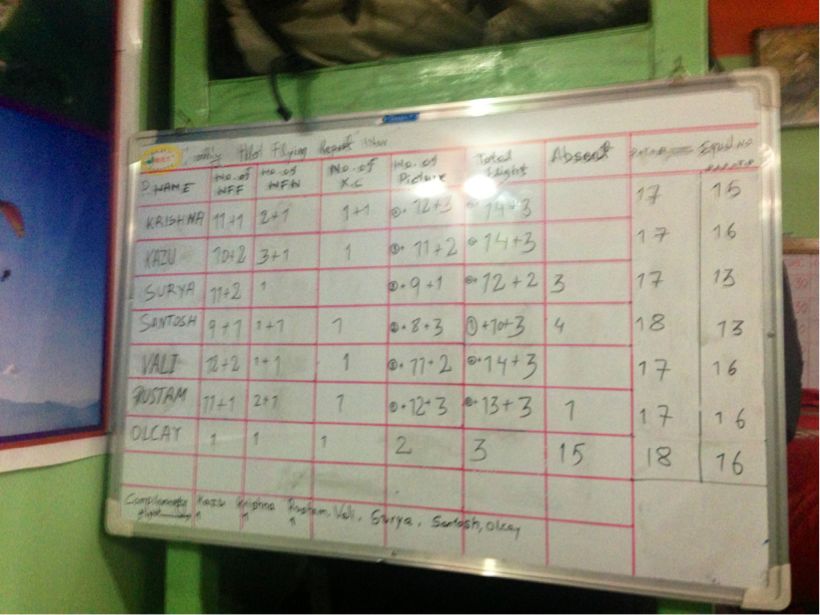 Pilot Flying Report
P. NAME No. of WFF No. of WFW No. of X.C No. of Picture Total Flight Absent Equal No
KRISHNA 11+1 2+1 1+1 12+3 14+3 17 15
KAZU 10+2 3+1 1 11+2 14+3 17 16
SURYA 11+2 1 9+1 12+2 3 17 13
SANTOSH 9+1 1+1 1 8+3 +10+3 4 18 13
VALI 12+2 1+1 1 11+2 14+3 17 16
RUSTAM 11+1 2+1 1 12+3 13+3 1 17 16
OLCAY 1 1 1 2 3 15 18 16
Kazu Krishna Rustam, Vali, Surya, Santosh, Olcay
flight